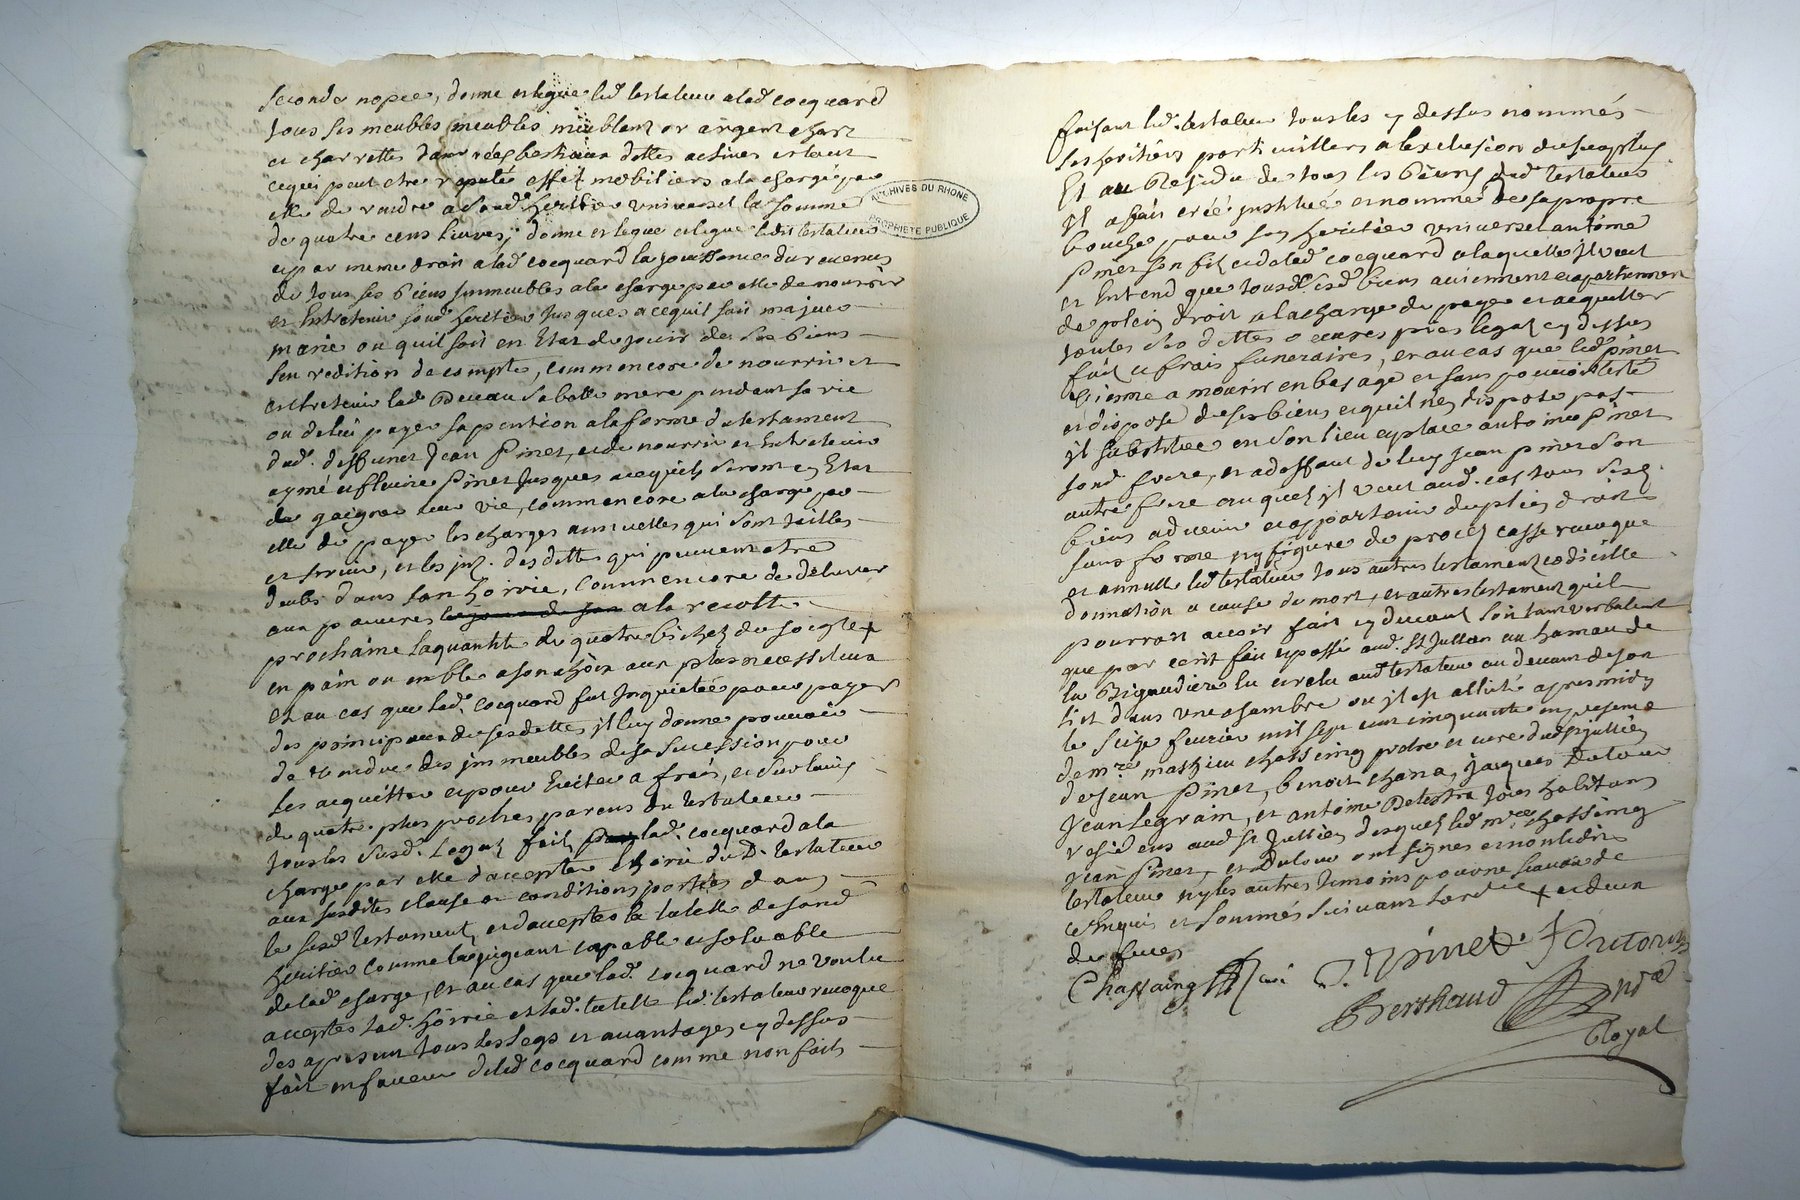 seconde nopce, donne et legue led testateur a lad cocquard
tous ses meubles meublant or argent chars
et charrettes danrées bestiaux dettes actives et tout
ce qui peut etre reputé effet mobiliers a la charge par
elle de rendre a sond heritier universel la somme
de quatre cens livres; donne et legue ledit testateur
et par meme droit a lad cocquard la jouissance du revenus
de tous ses biens immeubles a la charge par elle de nourrir
et entretenir sond heritier jusques a ce quil soit majeur
marié ou quil soit en etat de jouir de ses biens
sen redition de compte, comm encore de nourrir et
entretenir lad sa belle mere pendant sa vie
ou de luy payer sa pention a la forme du testament
dud. deffunct Jean Pinet, et de nourrir et entretenir
aymé et fleurie Pinet jusques a ce quils seront en etat
de gaegner leur vie, comm encore a la charge par
elle de payer les charges annuelles qui sont tailles
et servis, et les jnt. des dettes qui peuvent etre
deubs dans son hoirie, comm encore de delivrer
aux pauvres a la recolte
prochaine la quantité de quatre bichets de soigle +
en pain ou en blé a son choix aux plus necessiteux
et au cas que lad. cocquard fut inquietée pour payer
des principaux de ses dettes, il luy donne pouvoir
de vendre des immeubles de sa sucession pour
les acquitter et pour eviter a frais, et sur lavis
de quatre plus proches parens du testateur
tous les susd. legats faits lad. cocquard a la
charge par elle d'accepter lhoirie du D. testateur
aux susdites clause et conditions portées dans
le susd testament, et daccepter la tutelle de sond
heritier comme la jugeant capable et solvable
de lad charge, et au cas que lad. cocquard ne voulu
accepter lad. hoirie et lad. tutelle led. testateur revoque
des a present tous les legs et avantages cy dessus
fait en faveur de lad cocquard comme non faits
ARCHIVES DU RHONE
PROPRIETE PUBLIQUE
faisant led. testateur tous les cy dessus nommés
ses heritiers particulliers a lexclusion du surplus
Et au Residu de tous les biens dud testateur
Il a fait créé justitué et nommé de sa propre
bouche pour son heritier universel antoine
Pinet son fils et de lad cocquard a laquelle il veut
et entend que tousd. sesd biens aviennent et apartiennent
de plein droit a la charge de payer et acquitter
toutes ses dettes oeuvres pies legats cy dessus
fait et frais funeraires, et au cas que led pinet
vienne a mourir en bas age et sans pouvoir testé
et disposé de ses biens et quil nen dispose pas
il substitue en son lieu et place antoine Pinet
sond. frere, et a deffaut de luy jean pinet son
autre frere auquel il veut aud. cas tous sesd.
biens advenir et appartenir de plein droit
sans forme ny figure de procès casse revoque
et annulle led testateur tous autres testament codicille
donnation a cause de mort, et autres testament quil
pourroit avoir fait cy devant soit tant verbalent
que par ecrit fait et passé aud. St Jullien au hameau de
la Rigaudiere lu et relu aud testateur au devant de son
lict dans une chambre ou il est allité apres midy
le seize fevrier mil sept cent cinquante en presence
de mre mathieu chassaing pretre et curé dud st jullien
de jean Pinet, benoit chana, jacques Dutour
Jean Legrain, et antoine Delestra tous habitans
residens aud St Jullien desquels led mre chassaing
jean Pinet, et Dutour ont signés et non ledit
testateur ny les autres temoins pour ne scavoir de
ce enquis et sommés suivant lordce + et deux
de feves
Chassaing curé J. Pinet J Dutour
Berthaud nre
Royal